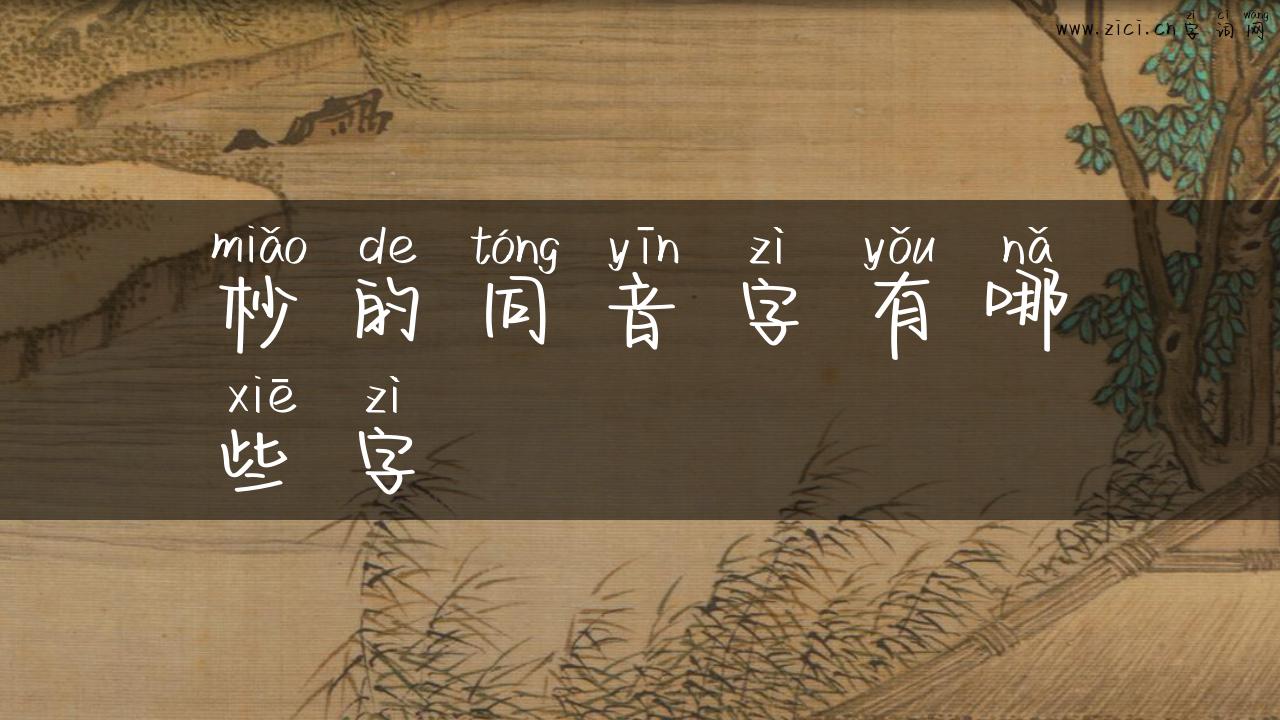 zì cí wǎng
www.zici.cn字词网
miǎo de tóng yīn zì yǒu nǎ
杪的同音字有哪
xiē zì
些字